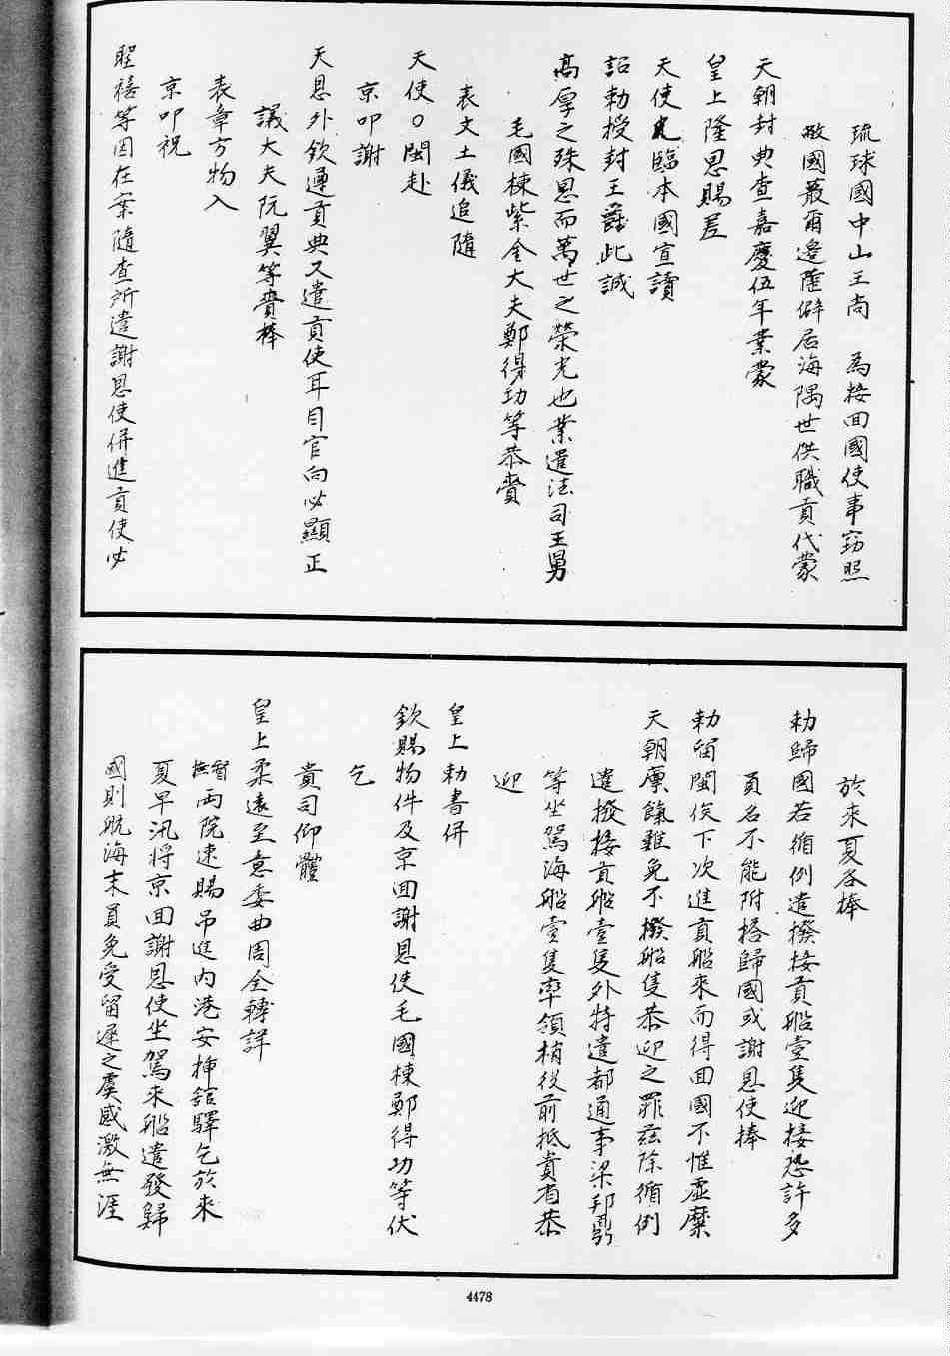 琉球國中山王尚　為接回國使事窃照
敝國蕞爾邊陲僻居海隅世供職貢代蒙
天朝封典查嘉慶伍年業蒙
皇上隆恩賜差
天使臨本國宣讀
詔勅授封王爵此誠
高厚之殊恩而萬世之榮光也業遣法司王舅
毛國棟紫金大夫鄭得功等恭賫
表文土儀追隨
天使○閩赴
京叩謝
天恩外欽遵貢典又遣貢使耳目官向必顯正
議大夫阮翼等賫捧
表章方物入
京叩祝
聖禧等因在案隨查所遣謝恩使併進貢使必
於來夏各捧
勅歸國若循例遣撥接貢船壹隻迎接恐許多
員名不能附搭歸國或謝恩使捧
勅留閩俟下次進貢船來而得回國不惟虛糜
天朝廩餼難免不撥船隻恭迎之罪茲除循例
遣撥接貢船壹隻外特遣都通事梁邦鼎
等坐駕海船壹隻率領梢役前抵貴省恭
迎
皇上勅書併
欽賜物件及京回謝恩使毛國棟鄭得功等伏
乞
貴司仰體
皇上柔遠至意委曲周全轉詳
督撫兩院速賜吊進內港安插舘驛乞於來
夏早汛將京回謝恩使坐駕來船遣發歸
國則航海末員免受留遲之虞感激無涯
4478